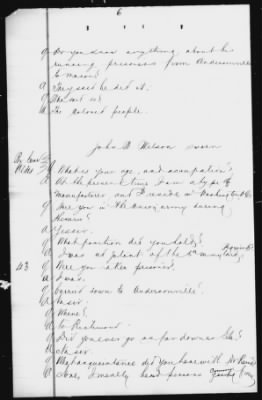 6
Q Do you know anything about his
running prisoners from Andersonville
to Macon?
A They said he did it.
Q Who said so?
A The colored people.
John M. Wilson sworn
Q What is your age, and occupation?
A At the present time I am a type
manufacturer and I reside in Washington D.C.
Q Were you in the Union army during
A Yes sir.
Q What position did you hold?
A I was a of the 6th Maryland
43
Q Were you taken prisoner.
A I was.
Q Carried down to Andersonville?
A No sir.
Q Where?
A to Richmond
Q Did you ever go as far down as Ga?
A No sir.
Q What acquaintance did you have with Mr
A None, I merely heard persons